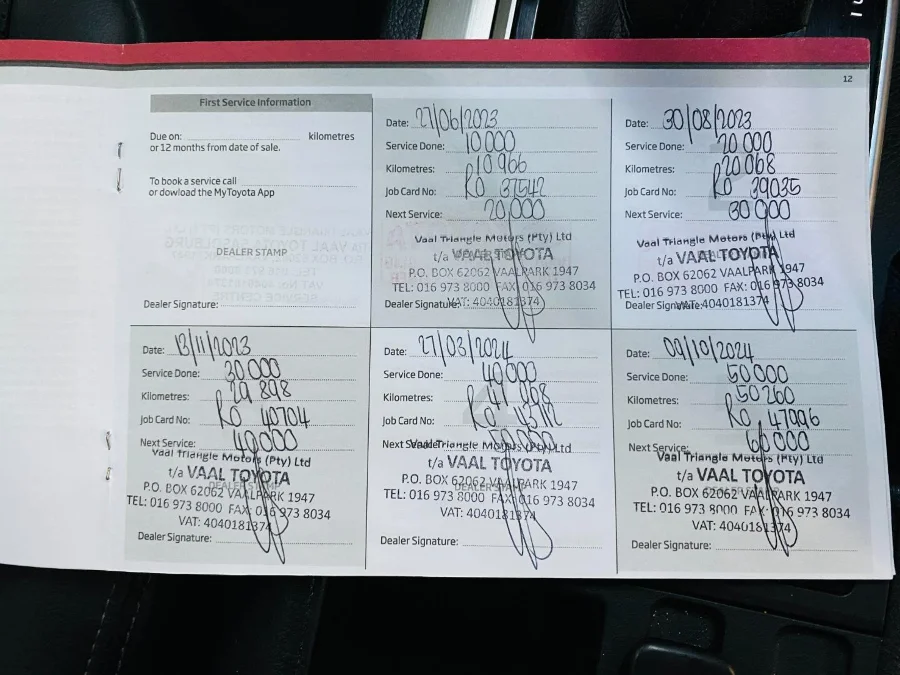 12
First Service Information
Due on: kilometres
or 12 months from date of sale.
To book a service call
or dowload the MyToyota App
DEALER STAMP
Dealer Signature:
Date: 27/06/2023
Service Done: 10 000
Kilometres: 10 966
Job Card No: RO 37542
Next Service: 20,000
Vaal Triangle Motors (Pty) Ltd
t/a VAAL TOYOTA
P.O. BOX 62062 VAALPARK 1947
TEL: 016 973 8000 FAX: 016 973 8034
Dealer Signature: VAT: 4040181374
Date: 30/08/2023
Service Done: 20 000
Kilometres: 20 068
Job Card No: RO 39035
Next Service: 30 000
Vaal Triangle Motors (Pty) Ltd
t/a VAAL TOYOTA
P.O. BOX 62062 VAALPARK 1947
TEL: 016 973 8000 FAX: 016 973 8034
Dealer Signature: VAT: 4040181374
Date: 13/11/2023
Service Done: 30 000
Kilometres: 29 898
Job Card No: RO 40704
Next Service: 40,000
Vaal Triangle Motors (Pty) Ltd
t/a VAAL TOYOTA
P.O. BOX 62062 VAALPARK 1947
TEL: 016 973 8000 FAX: 016 973 8034
VAT: 4040181374
Dealer Signature:
Date: 27/03/2024
Service Done: 40 000
Kilometres:
Job Card No: RO
Next Service: 50,000
Vaal Triangle Motors (Pty) Ltd
t/a VAAL TOYOTA
P.O. BOX 62062 VAALPARK 1947
TEL: 016 973 8000 FAX: 016 973 8034
VAT: 4040181374
Dealer Signature:
Date: 09/10/2024
Service Done: 50 000
Kilometres: 50 260
Job Card No: RO 47996
Next Service: 60 000
Vaal Triangle Motors (Pty) Ltd
t/a VAAL TOYOTA
P.O. BOX 62062 VAALPARK 1947
TEL: 016 973 8000 FAX: 016 973 8034
VAT: 4040181374
Dealer Signature: